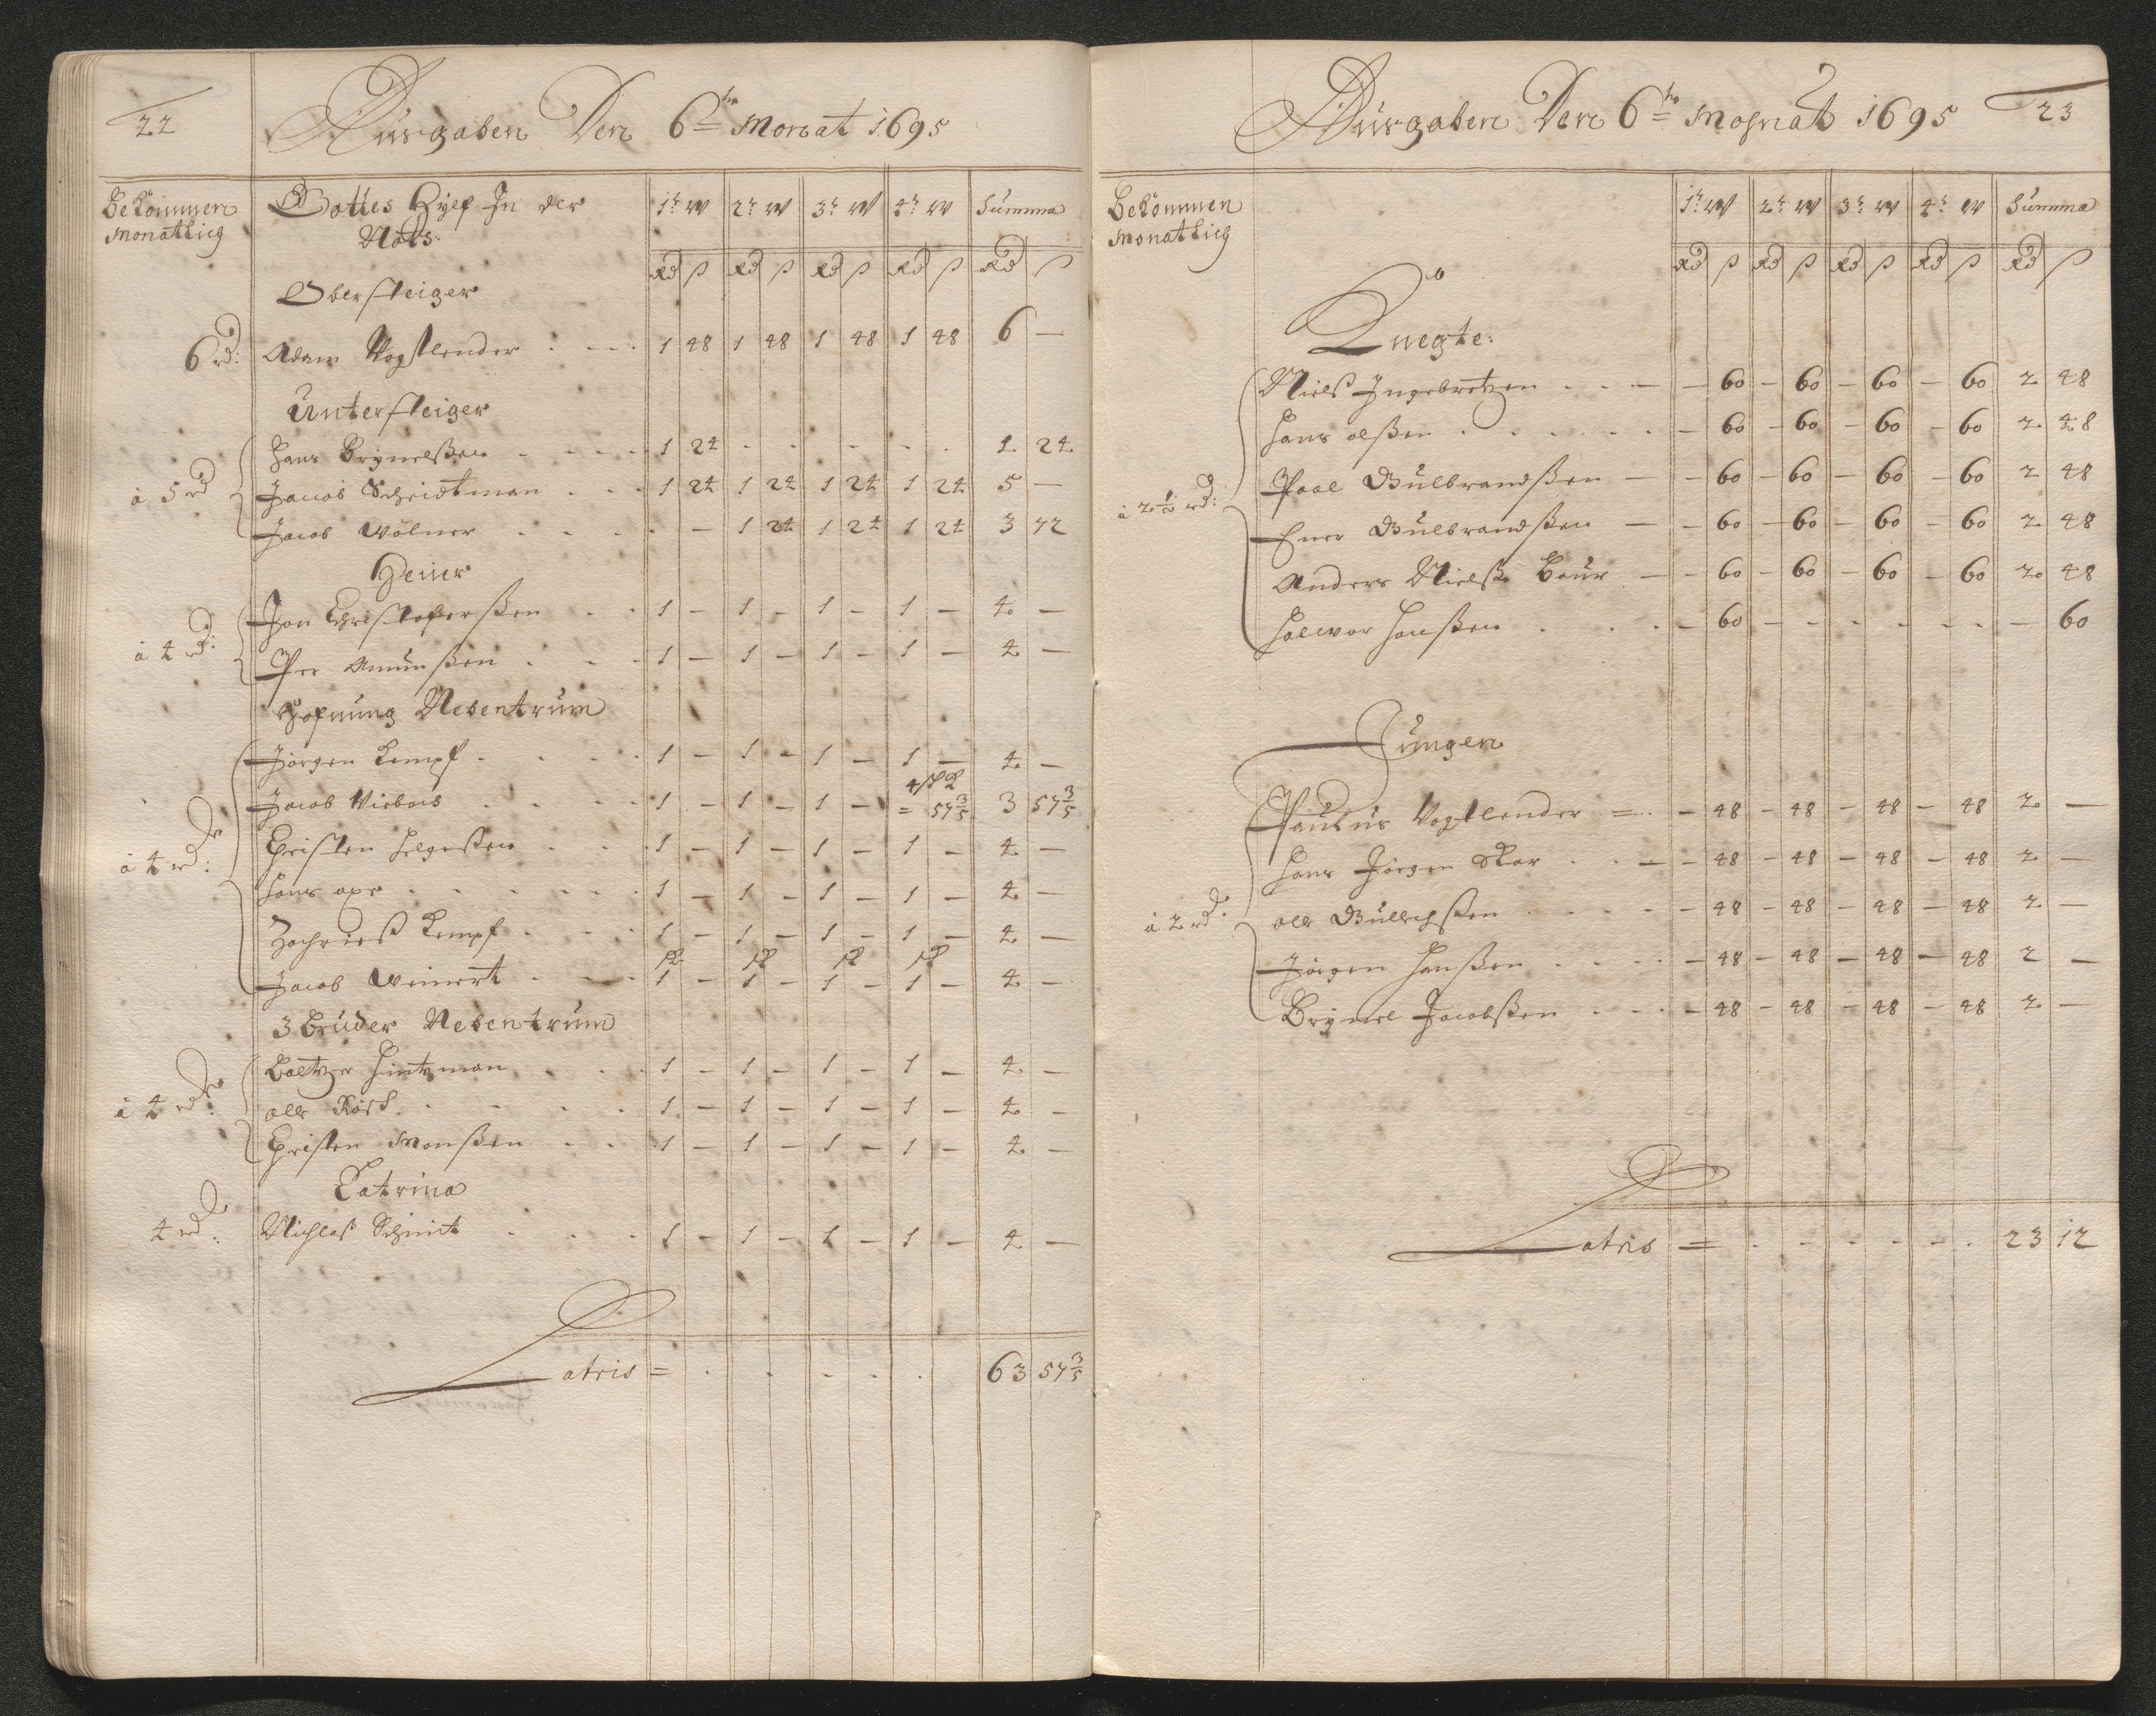 22
Ausgaben Den 6te Monat 1695
Bekommen Monatlich
Gottes Hylf In der Nots.
1r W 2r W 3r W 4r W Summa
Rd ß Rd ß Rd ß Rd ß Rd ß
Obersteiger
6 rd: Adam Vogtlender 1 48 1 48 1 48 1 48 6 —
Untersteiger
à 5 rd
Hans Brynelßen 1 24 - - - - - - 1 24
Jacob Scheidtman 1 24 1 24 1 24 1 24 5 —
Jacob Wölner - - 1 24 1 24 1 24 3 72
Heuer
à 4 rd:
Jon Christofferßen 1 – 1 – 1 – 1 – 4 —
Per Amunßen 1 – 1 – 1 – 1 – 4 —
Hofnung Nebentrum
à 4 rd:
Jörgen Kempf 1 – 1 – 1 – 1 — 4 —
Jacob 1 – 1 – 1 – = 57 3/5 3 57 3/5
Christen Helgeßen 1 – 1 – 1 – 1 – 4 —
Hans 1 – 1 – 1 – 1 – 4 —
Zachrieß Kempf 1 – 1 – 1 – 1 – 4 —
Jacob Weinert 1 – 1 – 1 – 1 – 4 —
3 Brüder Nebentrum
à 4 rd:
Baltzer Hintzman 1 – 1 – 1 – 1 – 4 —
Ole Rösk 1 – 1 – 1 – 1 – 4 –
Christen Monßen 1 – 1 – 1 – 1 – 4 –
Catrina
4 rd: Nichlas Schmit 1 – 1 – 1 – 1 – 4 —
Latris = 63 57 3/5
Ausgaben Den 6te Mohnat 1695
23
Bekommen Monatlich
1r W 2r W 3r W 4r W Summa
Rd ß Rd ß Rd ß Rd ß Rd ß
Knegte:
à 2 1/2 rd:
Nielß Ingebretzen – 60 – 60 – 60 – 60 2 48
Hans Olßen – 60 – 60 – 60 – 60 2 48
Poul Gulbrandßen – 60 – 60 – 60 – 60 2 48
Ener Gulbrandßen – 60 – 60 – 60 – 60 2 48
Anders Nielß Baur – 60 – 60 – 60 – 60 2 48
Halwor Hanßen – 60 – - - - - - — 60
Jungen
à 2 rd:
Paulus Vogtlender = – 48 – 48 – 48 – 48 2 —
Hans Jörgen Skar – 48 – 48 – 48 – 48 2 —
Ole – 48 – 48 – 48 – 48 2 —
Jörgen Hanßen – 48 – 48 – 48 – 48 2 —
Brynel Jacobßen – 48 – 48 – 48 – 48 2 —
Latris = 23 12